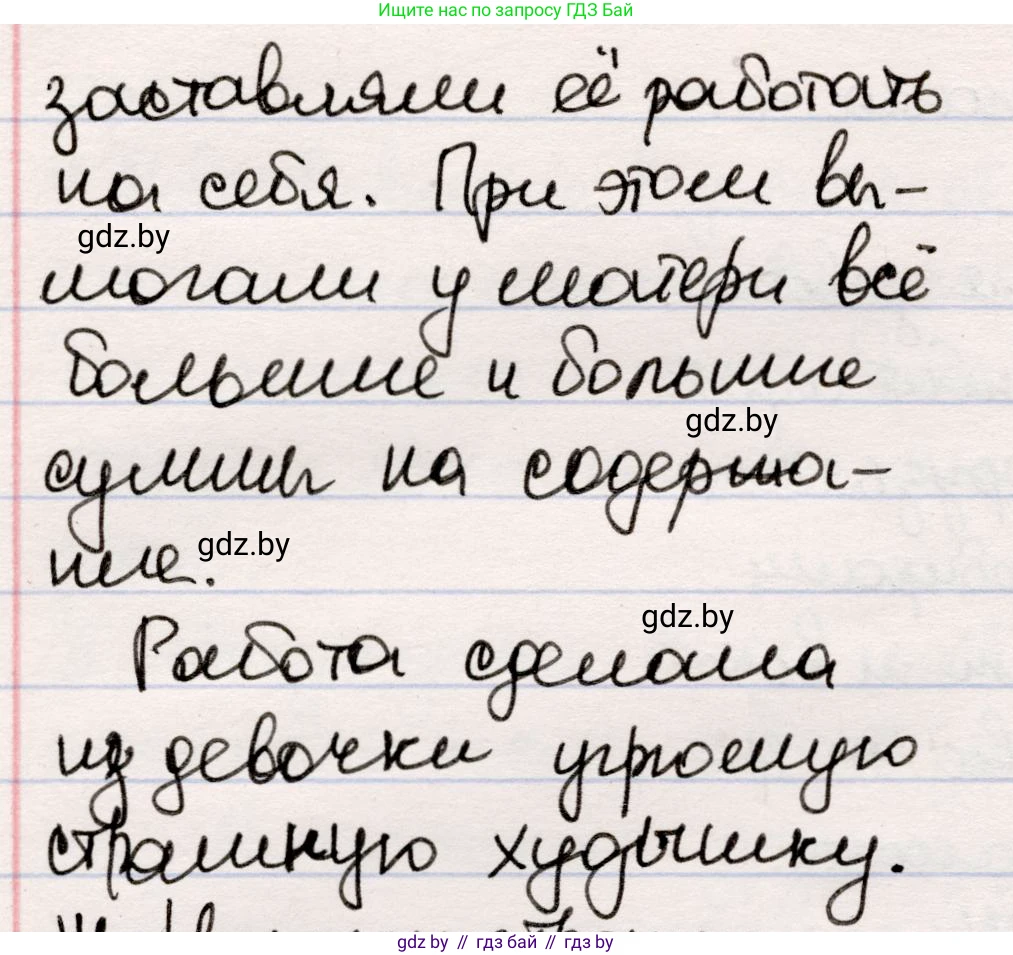 Ищите нас по запросу ГДЗ Бай
заставляли её работать
на себя. При этом вы-
gdz.by
могали у матери всё
большие и большие
gdz.by
суммы на содержа-
ние.
gdz.by
gdz.by
Работа сделала
из девочки угрюмую
страшную худышку.
gdz by // гдз бай // gdz by